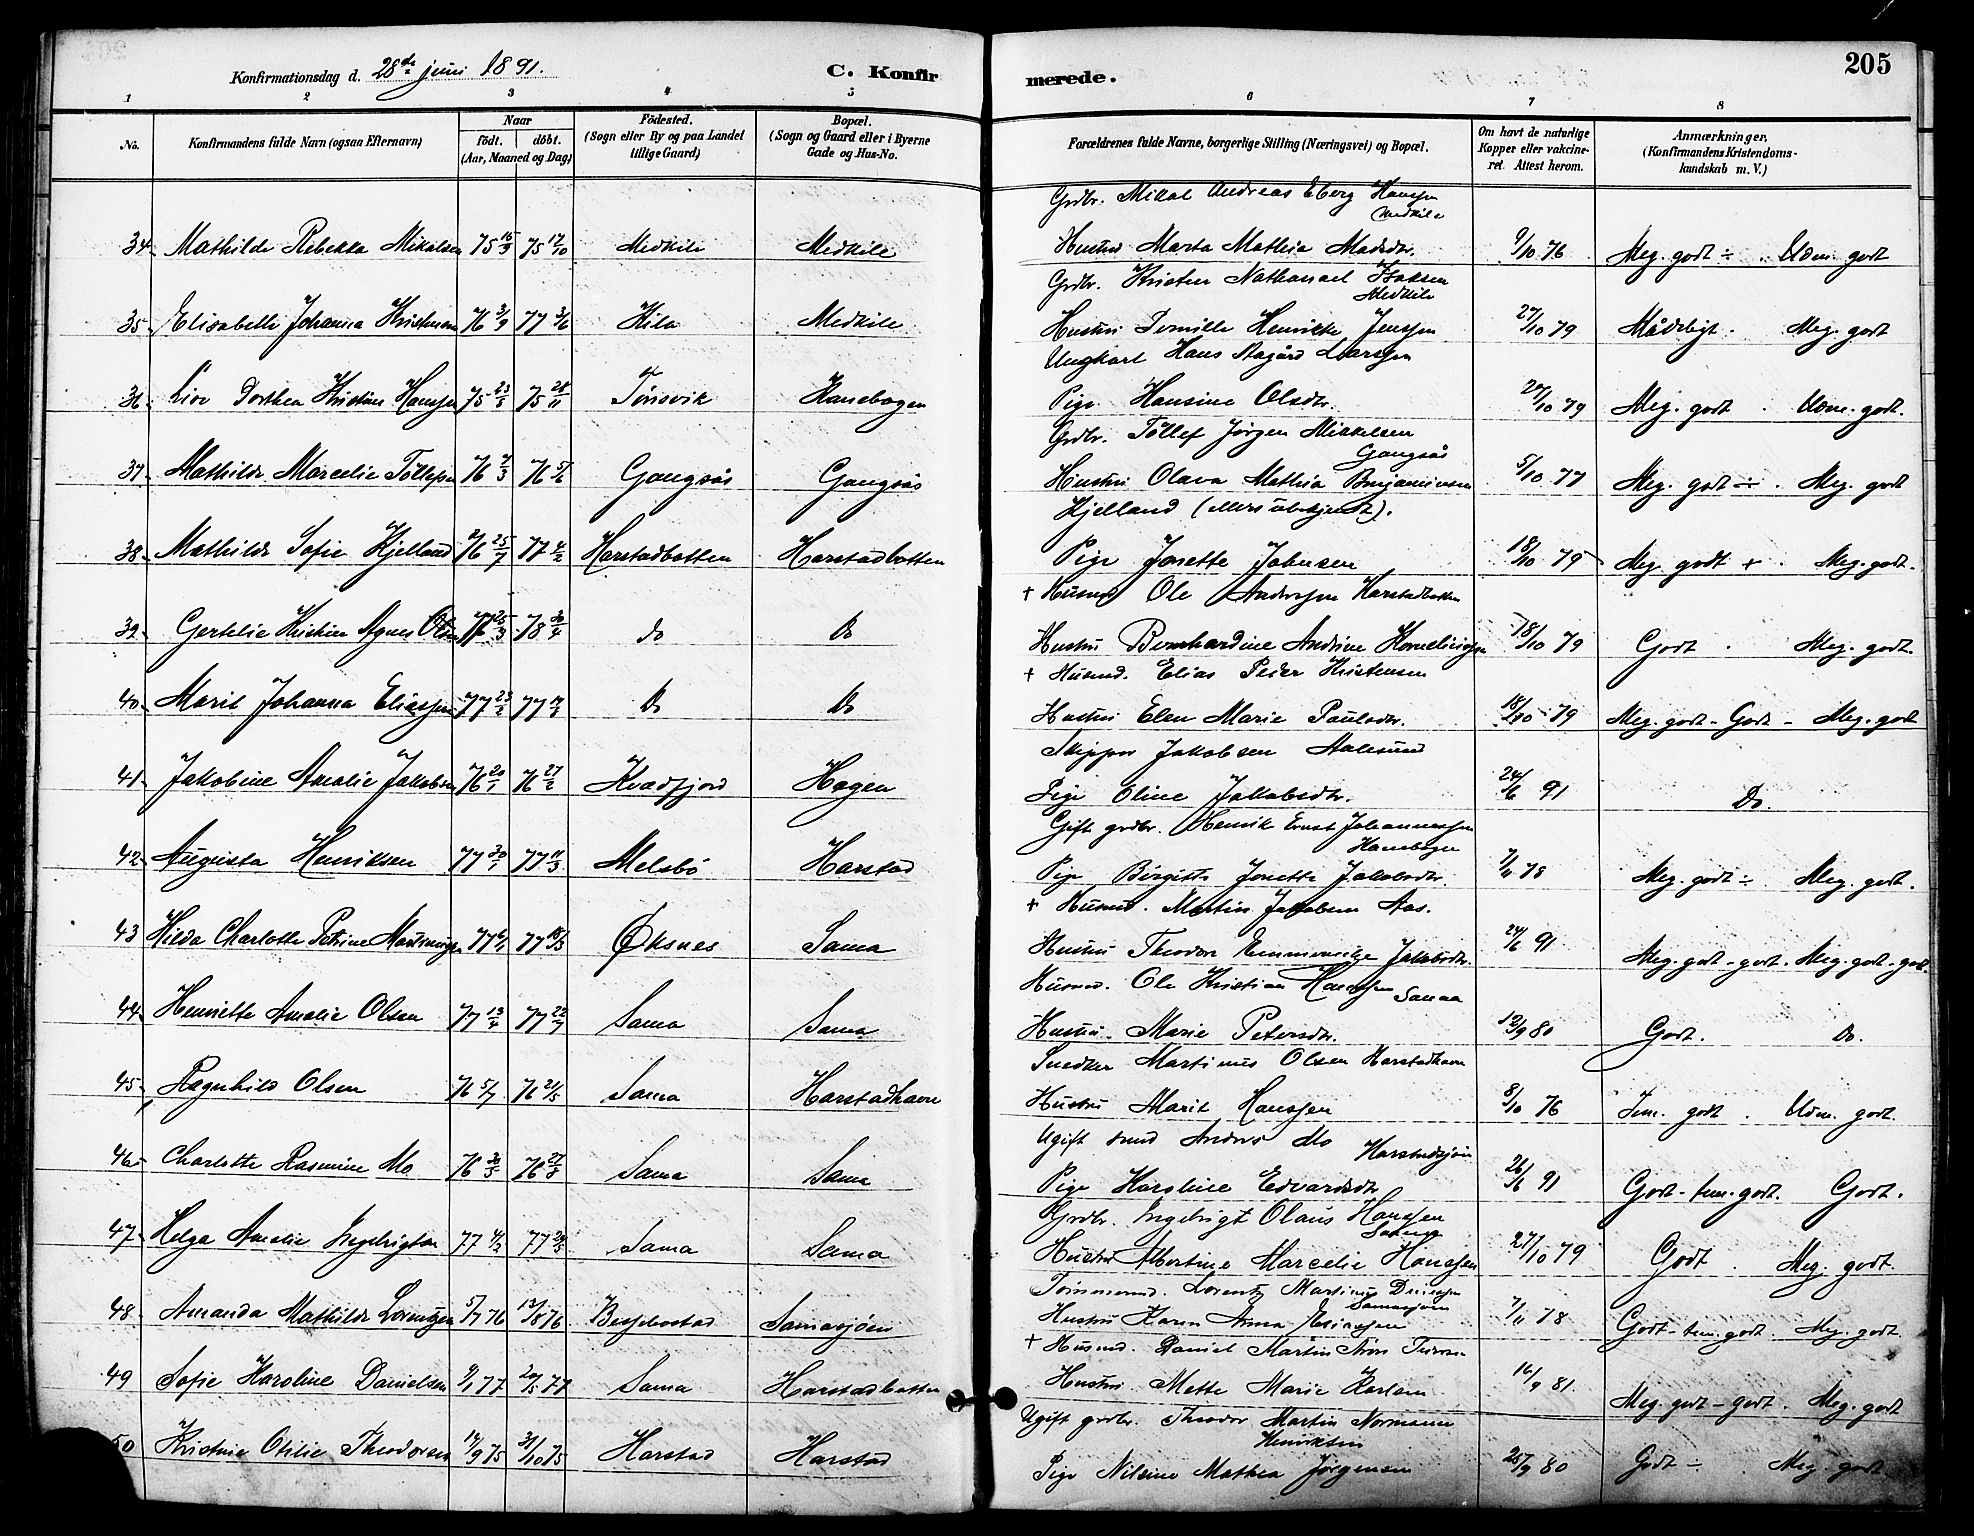 205
Konfirmationsdag d. 28de juni 1891.
C. Konfir
merede.
1 2 3 4 5
6 7 8
No.
Konfirmandens fulde Navn (ogsaa Efternavn)
Naar
født. døbt.
(Aar, Maaned og Dag)
Fødested.
(Sogn eller By og paa Landet
tillige Gaard)
Bopæl.
(Sogn og Gaard eller i Byerne
Gade og Hus-No.
Forældrenes fulde Navne, borgerlige Stilling (Næringsvei) og Bopæl.
Om havt de naturlige
Kopper eller vakcine-
ret. Attest herom.
Anmærkninger,
(Konfirmandens Kristendoms-
kundskab m. V.)
Grdbr. Mikal Andreas Eberg Hanssen
Medkile
34 Mathilde Rebekka Mikalsen 75 16/9 75 17/10 Medkile Medkile
Hustru Marta Mathia Madsdtr. 9/10 76 Meg. godt ÷ . Udm. godt
Grdbr. Kristen Nathanael Isaksen
Medkile
35 Elisabeth Johanna Kristensen 76 3/9 77 3/6 Kila Medkile
Hustru Pernille Henrikke Jenssen 27/10 79 Mådeligt . Meg. godt
Ungkarl Hans Aagård Larssen
36 Dorthea Kristine Hanssen 75 23/8 75 28/11 Tørisvik Kanebogen
Pige Hansine Olsdtr. 27/10 79 Meg. godt . Udm. godt.
Grdbr. Tollef Jørgen Mikkelsen
Gangsås
37 Mathilde Marcelie Tollefsen 76 7/3 76 5/6 Gangsås Gangsås
Hustru Olava Mathia Benjaminsen 5/10 77 Meg. godt ÷ . Meg. godt
Kjelland (ellers übekjendt).
38 Mathilde Sofie Kjelland 76 25/7 77 4/2 Harstadbotten Harstadbotten
Pige Jonette Johnsen 18/10 79 Meg. godt + . Meg. godt.
+ Husmd Ole Anderssen Harstadbotten
39 Gertelie Kristine Agnes Olsen 77 25/3 78 30/4 do Do
Hustru Bernhardine Andrine Korneliussen 18/10 79 Godt . Meg. godt.
+ Husmd. Elias Peder Kristensen
40 Marit Johanna Eliassen 77 23/2 77 Do Do
Hustru Elen Marie Paulsdtr. 18/10 79 Meg. godt - Godt - Meg. godt
Skipper Jakobsen Aalesund
41 Jakobine Amalie Jakobsen 76 20/1 76 27/2 Kvædfjord Hagen
Pige Oline Jakobsdtr. 24/6 91 Do.
Gift grdbr. Henrik Ernst Johannessen
Kanebogen
42 Augusta Henriksen 77 30/1 77 11/3 Melsbø Harstad
Pige Birgitte Jonette Jakobsdtr. 7/11 78 Meg. godt ÷ Meg. godt.
+ Husmd. Martin Jakobsen Aas.
43 Hilda Charlotte Petrine Martinussen 77 6/1 77 Øksnes Sama
Hustru Theodora Jakobsdtr. 24/6 91 Meg. godt - godt. Meg. godt - godt.
Husmd. Ole Kristian Hanssen Sama
44 Henriette Amalie Olsen 77 13/4 77 22/7 Sama Sama
Hustru Marie Petersdtr. 12/9 80 Godt. Do.
Snedker Martinus Olsen Harstadhavn
45 Ragnhild Olsen 76 5/7 76 21/5 Sama Harstadhavn
Hustru Marit Hanssen 8/10 76 Tem. godt . Udm. godt.
Ugift smed Anders Mo
Harstadsjøen
46 Charlotte Rasmine Mo 76 30/5 76 27/8 Sama Sama
Pige Karoline Edvardsdtr. 26/6 91 Godt - tem. godt. Godt.
Grdbr. Ingebrigt Olaus Hanssen
Sama
47 Helga Amalie Ingebrigtsen 77 4/2 77 29/5 Sama Sama
Hustru Albertine Marcelie Hanssen 27/10 79 Godt . Meg. godt.
Tømmermd. Lorentz Martinus
Samasjøen
48 Amanda Mathilde Lorentzen 5/7 76 13/8 76 Bessebostad Samasjøen
Hustru Karen Anna 7/11 78 Godt - tem. godt. Meg. godt.
+ Husmd. Daniel Martin
49 Sofie Karoline Danielsen 9/1 77 20/5 77 Sama Harstadbotten
Hustru Mette Marie Karlsen 16/9 81. Meg. godt - godt. Meg. godt
Ugift grdbr. Theodor Martin Normann
Henriksen
50 Kristine Otilie Theodorsen 14/9 75 31/10 75 Harstad Harstad
Pige Nilsine Mathea Jørgensen 25/9 80 Godt ÷ . Meg. godt